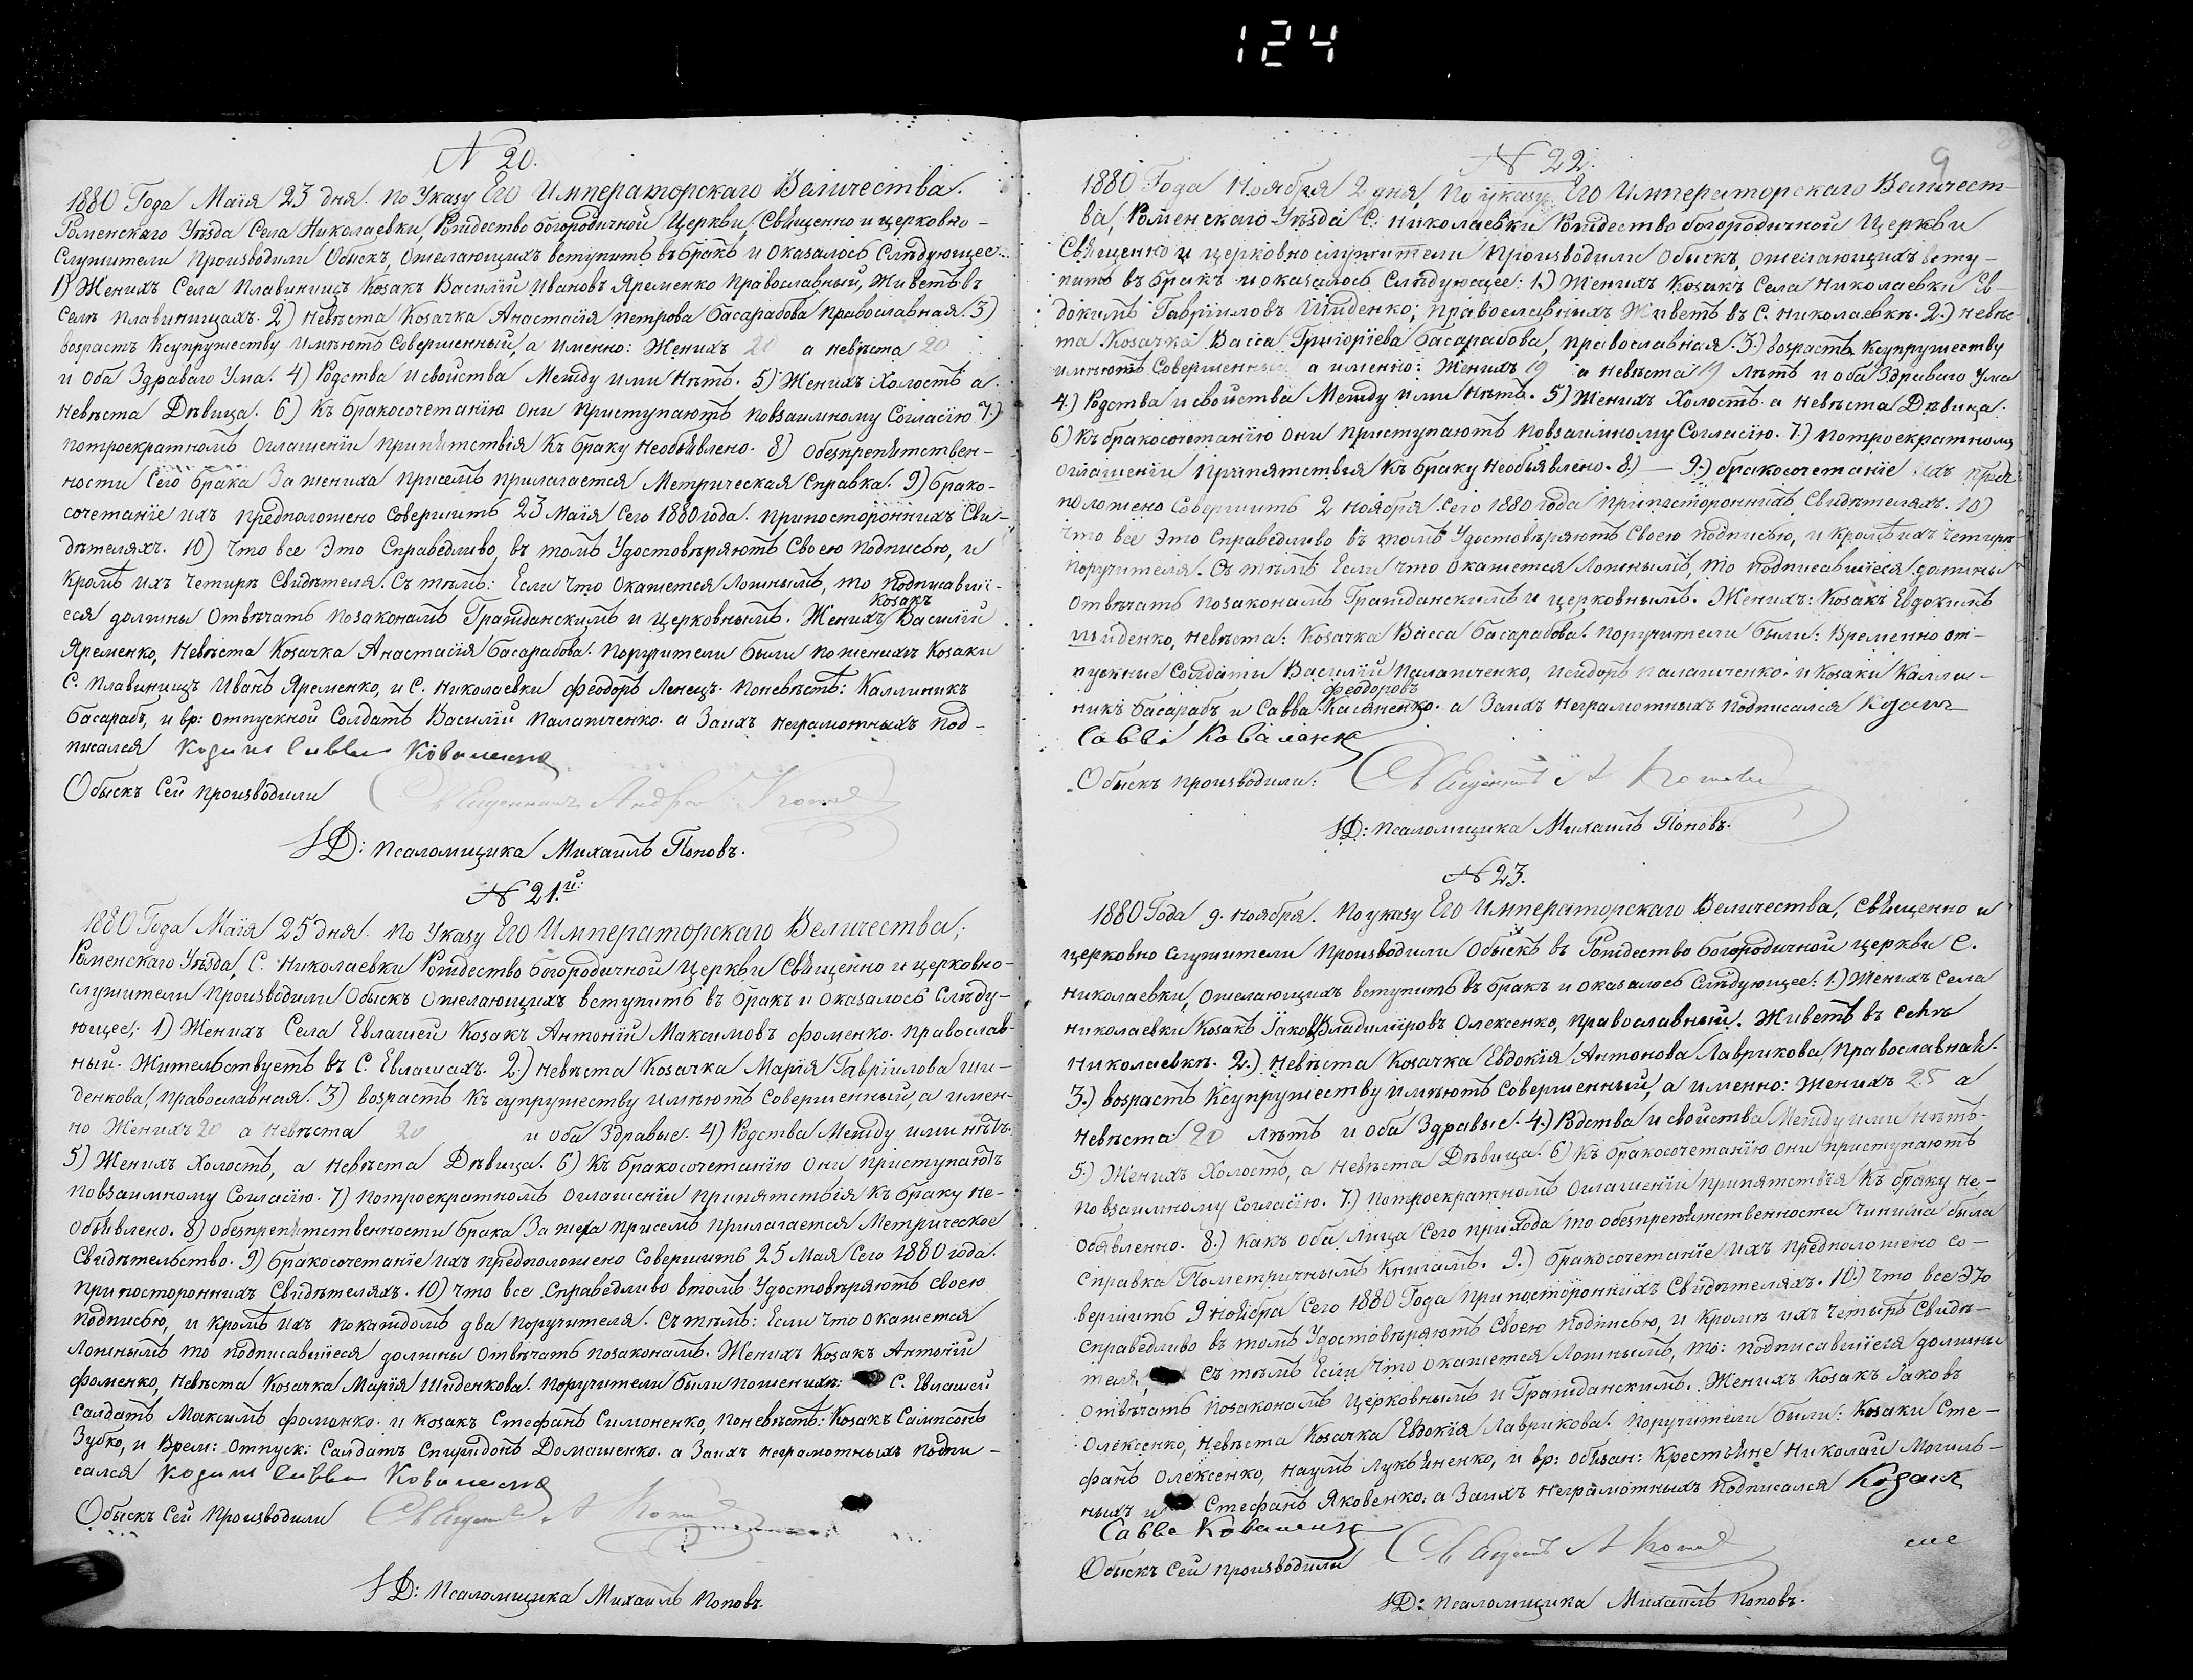 124
N 20.
1880 Года Маія 23 дня. По Указу Его Императорскаго Величества.
Роменскаго Уѣзда Села Николаевки, Рождество богородичной Церкви, Священно и церковно-
служители производили Обыскъ, ожелающихъ вступить въ бракъ и оказалось Слѣдующее:
1) Женихъ Села Плавинищъ Козакъ Василій Ивановъ Яременко Православный, Живетъ въ
Селѣ Плавинищахъ. 2) Невѣста Козачка Анастасія Петрова басарабова православная. 3)
возрастъ Ксупружеству имѣютъ Совершенный, а именно: Женихъ 20 а невѣста 20
и оба Здраваго Ума. 4) Родства и свойства Между ими Нѣтъ. 5) Женихъ Холостъ а
Невѣста Дѣвица. 6) Къ бракосочетанію они приступаютъ повзаимному Согласію 7.)
потроекратномъ Оглашеніи Припятствія Къ браку Необъявлено. 8) Обезпрепятствен-
ности Сего брака За жениха присемъ прилагается Метрическая Справка. 9) брако-
сочетаніе ихъ предположено Совершить 23 Маія Сего 1880 года. припостороннихъ Сви-
дѣтеляхъ. 10) Что все Это Справедливо, въ томъ Удостовѣряютъ Своею подписью, и
кромѣ ихъ четирѣ Свидѣтеля. Съ тѣмъ: Если Что Окажется Ложнымъ, то Подписавші-
Козакъ
еся должны Отвѣчать позаконамъ Гражданскимъ и церковнымъ. Женихъ Василій
Яременко, Невѣста Козачка Анастасія басарабова. поручители были по женихѣ Козаки
С. Плавинищъ Иванъ Яременко, и С. Николаевки Феодоръ Ленецъ. Поневѣстѣ: Каллиникъ
басарабъ, и вр: отпускной Солдатъ Василій Палапченко. а Заихъ неграмотныхъ Под-
писался Козакъ Савва Коваленко
Обыскъ Сей Производили Священникъ Андрей
И.Д: Псаломщика Михаилъ Поповъ.
N 21.й:
1880 Года Маія 25 дня. По Указу Его Императорскаго Величества;
Роменскаго Уѣзда, С. Николаевки Рождество богородичной Церкви Священно и церковно-
служители производили Обыскъ ожелающихъ вступить въ бракъ и оказалось Слѣду-
ющее; 1) Женихъ Села Евлашей Козакъ Антоній Максимовъ фоменко. православ-
ный. Жительствуетъ въ С. Евлашахъ. 2.) Невѣста Козачка Марія Гавріилова Ши-
денкова, православная. 3) возрастъ Къ супружеству имѣютъ Совершенный, а имен-
но Женихъ 20 а Невѣста 20 и оба Здравые. 4) Родства Между ими нѣтъ.
5) Женихъ Холостъ, а Невѣста Дѣвица. 6) Къ бракосочетанію они приступаютъ
повзаимному Согласію. 7) потроекратномъ Оглашеніи припятствія Къ браку Не-
объявлено. 8) обезпрепятственности брака За присемъ прилагается Метрическое
Свидѣтельство. 9) бракосочетаніе ихъ предположено Совершить 25 Мая Сего 1880 года.
припостороннихъ Свидѣтеляхъ. 10) что все Справедливо втомъ Удостовѣряютъ своею
подписью, и Кромѣ ихъ покаждомъ два поручителя. Съ тѣмъ: Если что окажется
Ложнымъ то подписавшіеся должны отвѣчать позаконамъ. Женихъ Козакъ Антоній
фоменко, Невѣста Козачка Марія Шиденкова. поручители были поженихѣ: С. Евлашей
Салдатъ Максимъ фоменко. и козакъ Стефанъ Симоненко, Поневѣстѣ: Козакъ Сампсонъ
Зубко, и Врем: Отпуск: Салдатъ Спиридонъ Домашенко. а Заихъ неграмотныхъ Подпи-
сался Козакъ Савва Коваленко
Обыскъ Сей Производили Священникъ А
И.Д: Псаломщика Михаилъ Поповъ.
9
N 22.
1880 Года Ноября 2 дня, По указу Его Императорскаго Величест-
ва, Роменскаго Уѣзда С. Николаевки Рождество богородичной Церкви
Священно и церковно служители производили Обыскъ, ожелающихъ всту-
пить въ бракъ и оказалось Слѣдующее: 1.) Женихъ Козакъ Села Николаевки Ев-
докимъ Гавріиловъ Шиденко; православныхъ Живетъ въ С. Николаевкѣ. 2.) Невѣс-
та Козачка Васса Григоріева басарабова, православная. 3.) возрастъ Ксупружеству
имѣютъ Совершенный а именно: Женихъ 19 а невѣста 19 лѣтъ и оба Здраваго Ума
4.) Родства и свойства Между ими Нѣтъ. 5) Женихъ Холостъ а Невѣста Дѣвица.
6) Къ бракосочетанію они приступаютъ повзаимному Согласію. 7.) потроекратномъ
оглашеніи припятствія Къ браку Необъявлено. 8.) — 9.) бракосочетаніе ихъ пред-
положено Совершить 2 Ноября Сего 1880 года припостороннихъ Свидѣтеляхъ. 10)
что все Это Справедливо въ томъ Удостовѣряютъ Своею подписью, и кромѣ ихъ четирѣ
поручителя. Съ тѣмъ Если что окажется Ложнымъ, то подписавшіеся должны
отвѣчать позаконамъ Гражданскимъ и церковнымъ. Женихъ: Козакъ Евдокимъ
Шиденко, невѣста: Козачка Васса басарабова. поручители были: Временно от-
пускные Солдаты Василій Палапченко, Исидоръ Палапченко. и Козаки Калли-
феодоровъ
никъ басарабъ и Савва Касяненко. а Заихъ неграмотныхъ подписался Козакъ
Савва Коваленко
Обыскъ производили: Священникъ А
И.Д: Псаломщика Михаилъ Поповъ.
N 23.
1880 Года 9. Ноября. По указу Его Императорскаго Величества, Священно и
церковно служители производили Обыскъ въ Рождество богородичной церкви С.
Николаевки, ожелающихъ вступить въ бракъ и оказалось Слѣдующее: 1.) Женихъ Села
Николаевки Козакъ Іаковъ Владиміровъ Олексенко, православный. Живетъ въ Селѣ
Николаевкѣ. 2.) Невѣста Козачка Евдокія Антонова Лаврикова, Православная.
3.) возрастъ Ксупружеству имѣютъ совершенный, а именно: женихъ 25 а
Невѣста 20 лѣтъ и оба Здравые. 4.) Родства и свойства Между ими нѣтъ.
5.) Женихъ Холостъ, а Невѣста Дѣвица. 6) Къ бракосочетанію они приступаютъ
по взаимному Согласію. 7.) потроекратномъ Оглашеніи припятствія Къ браку не-
объявленно. 8.) Какъ оба лица Сего прихода то обезпрепятственности Чинима была
Справка Пометричнымъ Книгамъ. 9.) бракосочетаніе ихъ предположено со-
вершить 9 ноября Сего 1880 Года при постороннихъ Свидѣтеляхъ. 10.) что все это
справедливо въ томъ Удостовѣряютъ Своею подписью, и кромѣ ихъ четырѣ Свидѣ-
теля, Съ тѣмъ Если что окажется Ложнымъ, то: подписавшіеся должны
отвѣчать позаконамъ Церковнымъ и Гражданскимъ. Женихъ Козакъ Іаковъ
Олексенко, Невѣста Козачка Евдокія Лаврикова. поручители были: Козаки Сте-
фанъ Олексенко, Наумъ Лукьяненко, и вр: обязан: Крестьяне Николай Могиль-
ныхъ и Стефанъ Яковенко. а Заихъ неграмотныхъ Подписался Козакъ
Савва Коваленко
Обыскъ Сей Производили Священникъ А
И.Д: Псаломщика Михаилъ Поповъ.